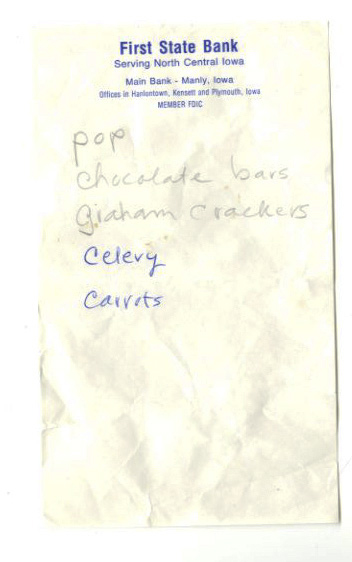 First State Bank
Serving North Central Iowa
Main Bank - Manly, Iowa
Offices in Hanlontown, Kensett and Plymouth, Iowa
MEMBER FDIC
pop
chocolate bars
graham crackers
Celery
Carrots